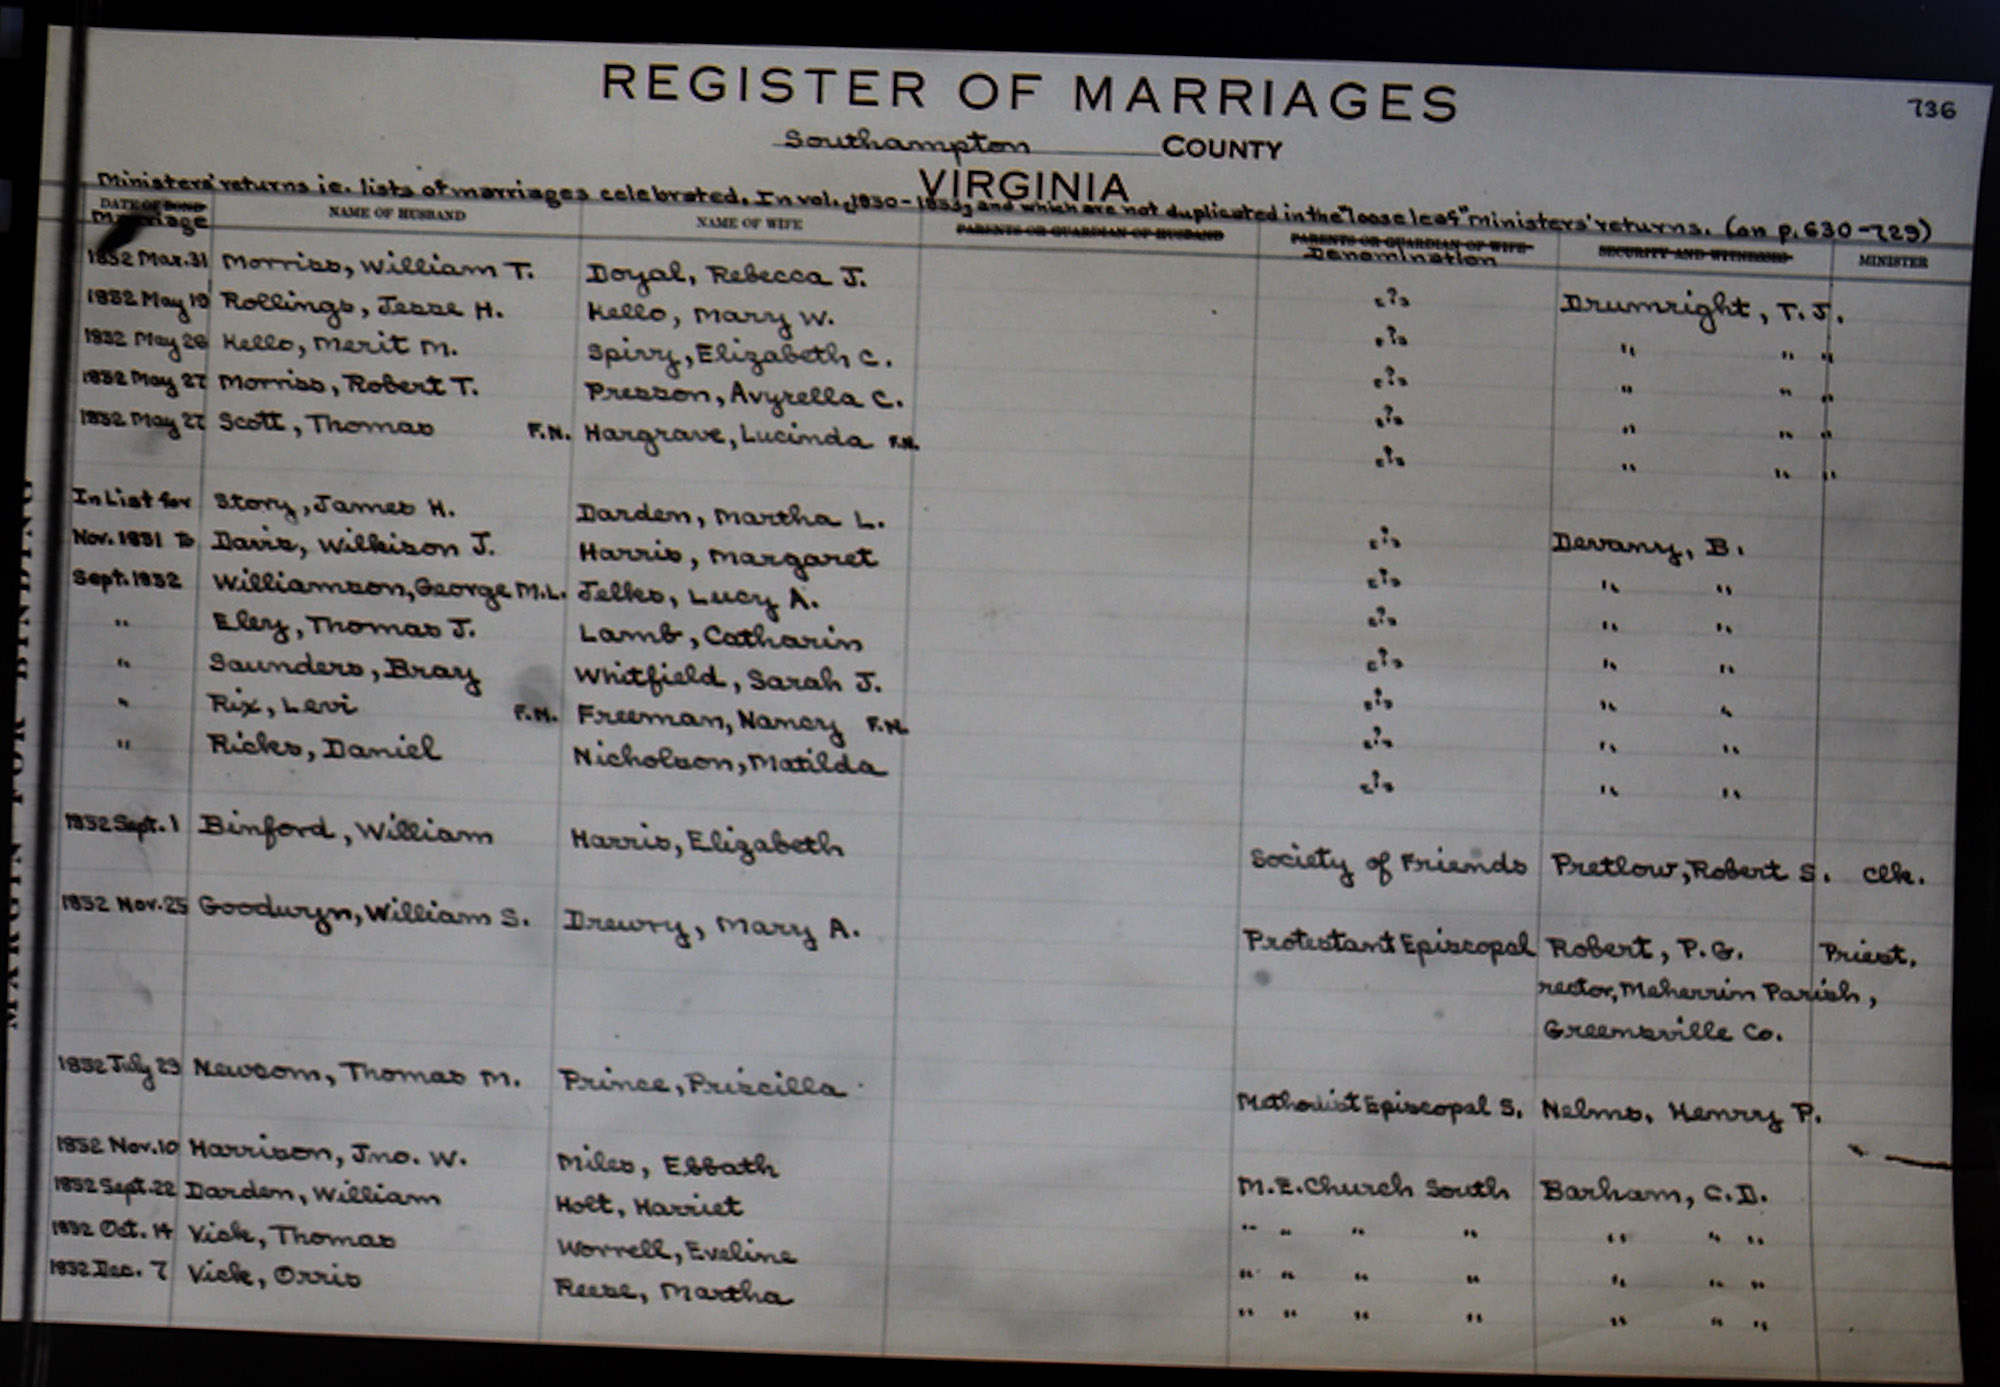 REGISTER OF MARRIAGES
736
Southampton COUNTY
VIRGINIA
Ministers' returns ie. lists of marriages celebrated, In vol. "1830-1853", and which are not duplicated in the "loose leaf" ministers' returns. (on p. 630-729)
DATE OF BOND NAME OF HUSBAND NAME OF WIFE PARENTS OR GUARDIAN OF HUSBAND PARENTS OR GUARDIAN OF WIFE SECURITY AND WITNESSES MINISTER
Marriage Denomination
1852 Mar. 31 Morriss, William T. Doyal, Rebecca J. "?" Drumright, T. J.
1852 May 19 Rollings, Jesse H. Kello, Mary W. "?" " " "
1852 May 26 Kello, Merit M. Spivy, Elizabeth C. "?" " " "
1852 May 27 Morriss, Robert T. Presson, Avyrella C. "?" " " "
1852 May 27 Scott, Thomas F.N. Hargrave, Lucinda F.N. "?" " " "
In List for Story, James H. Darden, Martha L. "?" Devany, B.
Nov. 1851 to Davis, Wilkison J. Harris, Margaret "?" " "
Sept. 1852 Williamson, George M.L. Jelks, Lucy A. "?" " "
" Eley, Thomas J. Lamb, Catharin "?" " "
" Saunders, Bray Whitfield, Sarah J. "?" " "
" Rix, Levi F.N. Freeman, Nancy F.N. "?" " "
" Ricks, Daniel Nicholson, Matilda "?" " "
1852 Sept. 1 Binford, William Harris, Elizabeth Society of Friends Pretlow, Robert S. Clk.
1852 Nov. 25 Goodwyn, William S. Drewry, Mary A. Protestant Episcopal Robert, P. G. Priest,
rector, Meherrin Parish,
Greensville Co.
1852 July 29 Newsom, Thomas M. Prince, Priscilla Methodist Episcopal S. Nelms, Henry P.
1852 Nov. 10 Harrison, Jno. W. Miles, Ebbath M. E. Church South Barham, C. D.
1852 Sept. 22 Darden, William Holt, Harriet " " " " " " "
1852 Oct. 14 Vick, Thomas Worrell, Eveline " " " " " " "
1852 Dec. 7 Vick, Orris Reese, Martha " " " " " " "
MARGIN FOR BINDING